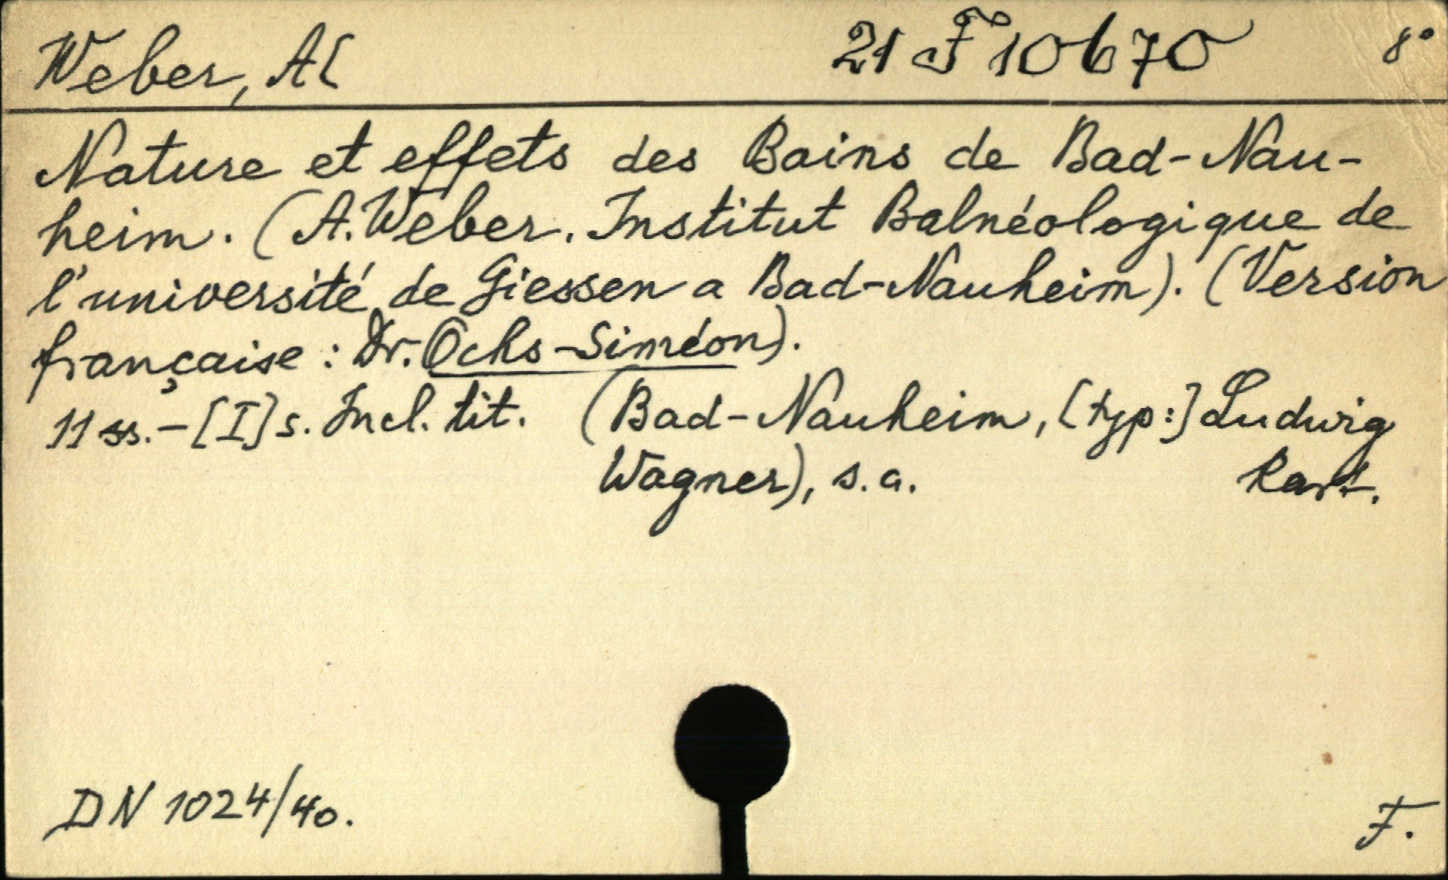 Weber, A[
21 F 10670
8°
Nature et effets des Bains de Bad-Nau-
heim. (A. Weber. Institut Balnéologique de
l'université de Giessen a Bad-Nauheim). (Version
française: Dr. Ochs-Siméon).
11 ss.-[I] s. Incl. tit. (Bad-Nauheim, [typ:] Ludwig
Wagner), s.a. Kart.
DN 1024/40.
F.